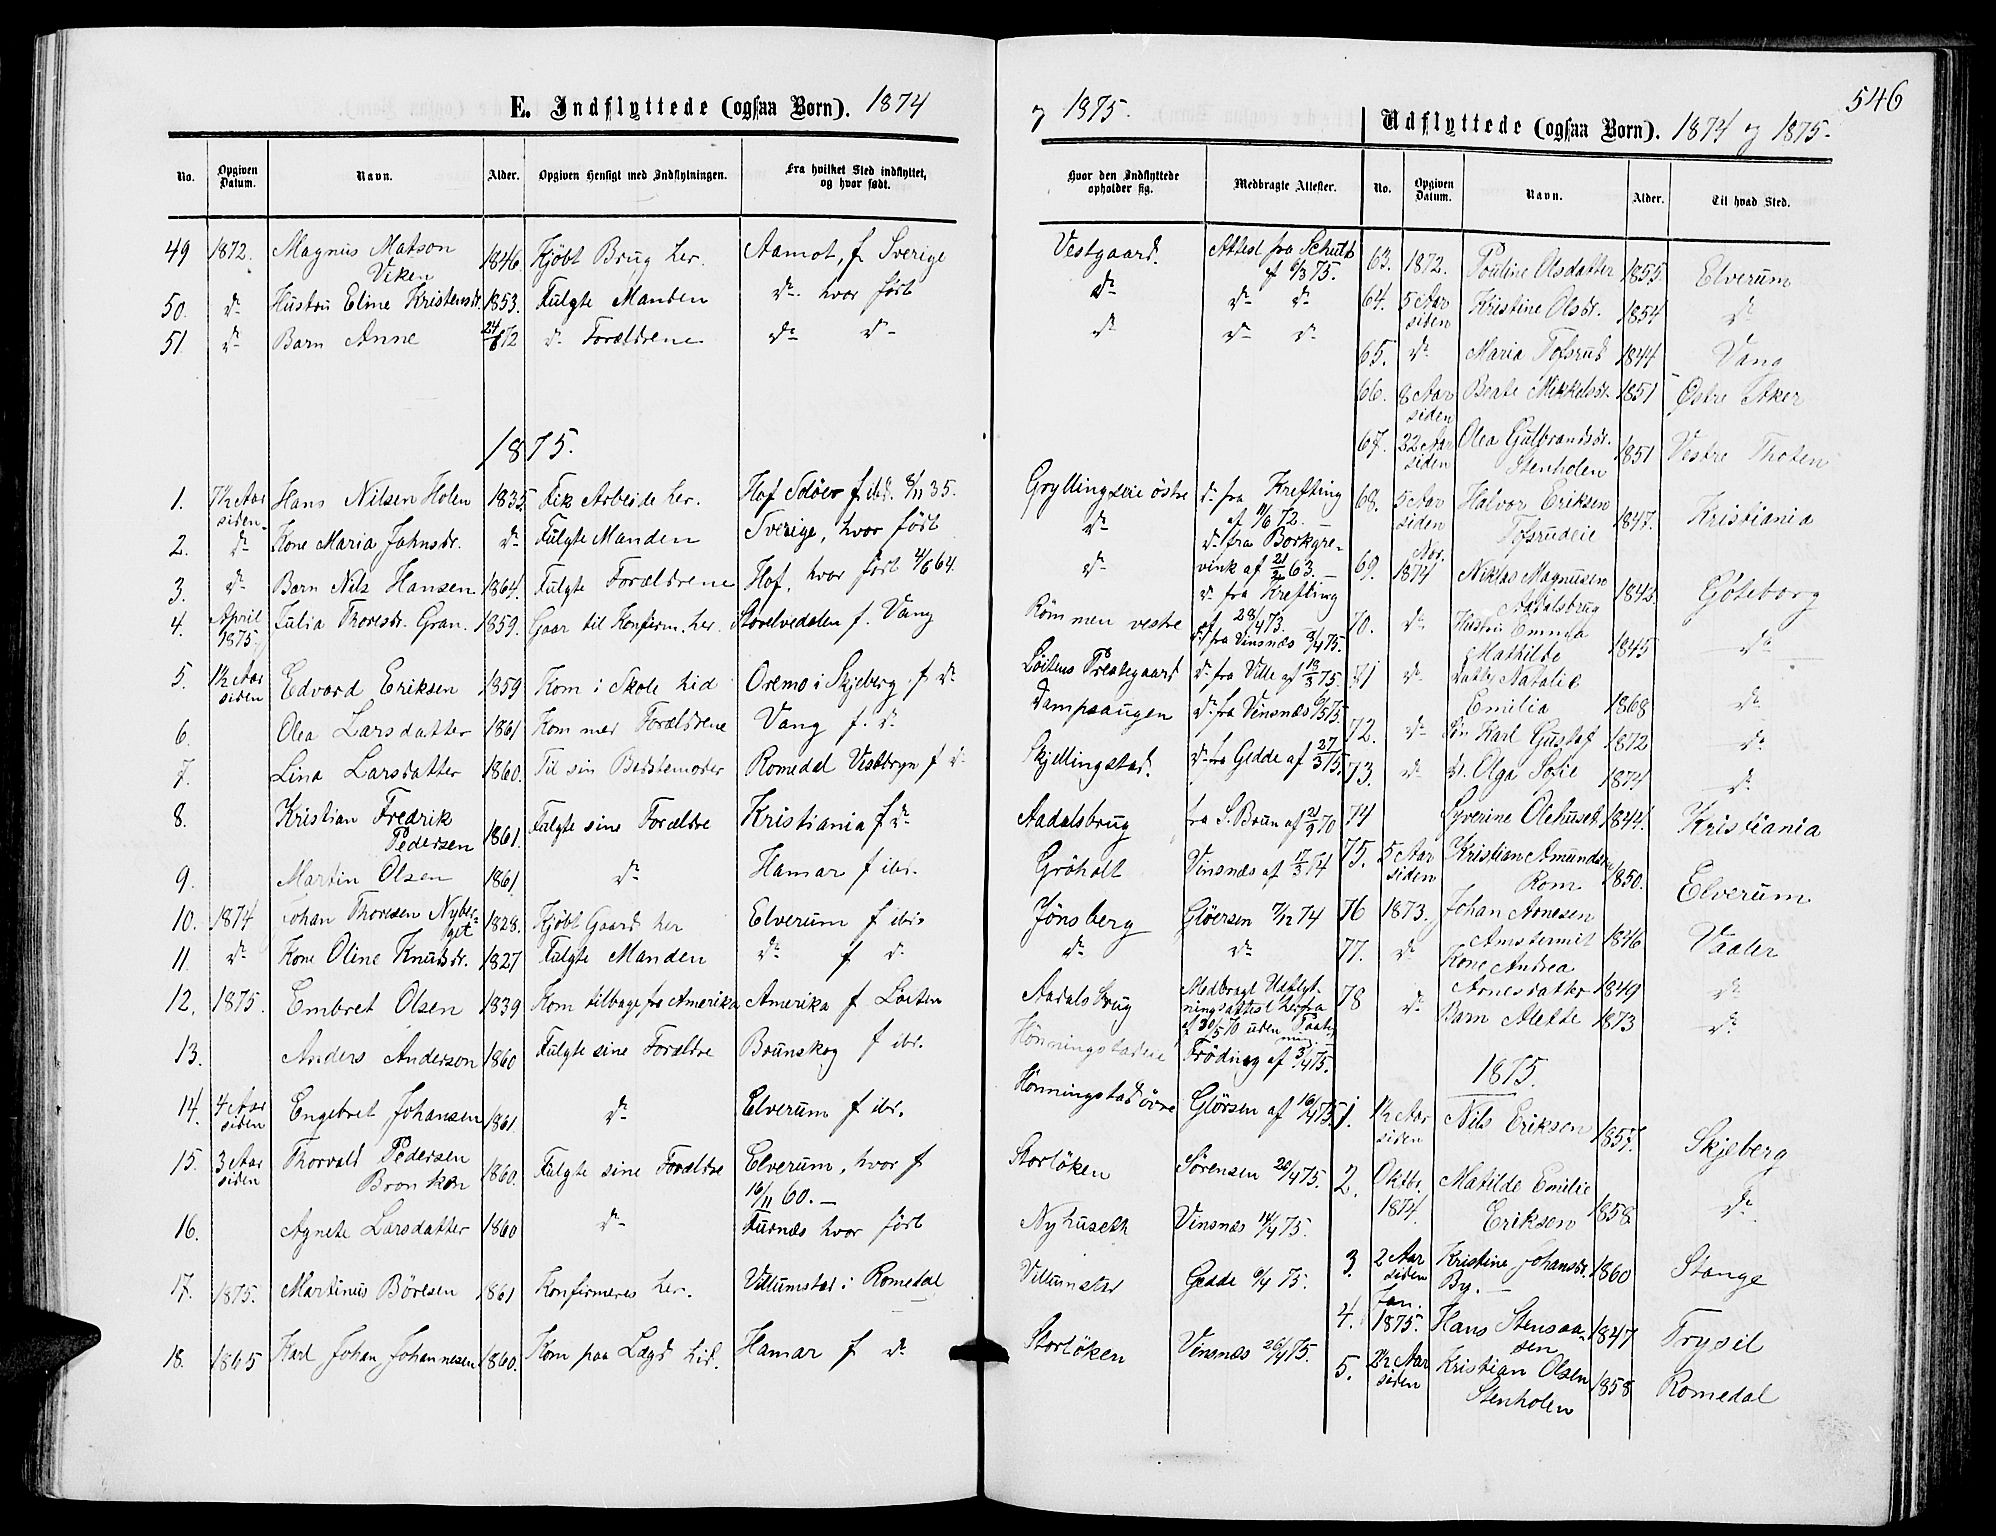 E. Indflyttede (ogsaa Børn). 1874
No. Opgiven Datum. Navn. Alder. Opgiven Hensigt med Indflytningen. Fra hvilket Sted indflyttet, og hvor født.
49 1872. Magnus Matson Viken 1846. Kjöbt Brug her. Aamot, f. Sverige
50. do Hustru Eline Kristensdr. 1853. Fulgte Manden do hvor född
51 do Barn Anne 24/8 72 do Forældrene do do
1875.
1. 7½ Aar siden Hans Nilsen Holen 1835. Fik Arbeide her. Hof Solöer f. ibd. 8/11 35.
2. do Kone Maria Johnsdr. do Fulgte Manden Sverige, hvor född
3. do Barn Nils Hansen 1864. Fulgte Forældrene Hof, hvor född 4/6 64.
4. April 1875. Julia Thoresdr. Gran. 1859. Gaar til Konfirm. her. Stavelvedalen f. Vang
5. 1½ Aar siden Edvard Eriksen 1859 Kom i Skole hid Oremo i Skjeberg f. do
6. Olea Larsdatter 1861 Kom med Forældrene Vang f. do
7. Lina Larsdatter 1860. Til sin Bedstemoder Romedal Vestbryn f do
8. Kristian Fredrik Pedersen 1861. Fulgte sine Forældre Kristiania f do
9. Martin Olsen 1861. do Hamar f ibd.
10. 1874 Johan Thoresen Nyberget 1828. Kjöbt Gaard her Elverum f ibid
11. do Kone Oline Knudsdr. 1827 Fulgte Manden do f do
12. 1875. Embret Olsen 1839 Kom tilbage fra Amerika Amerika f Löiten
13. Anders Anderson 1860 Fulgte sine Forældre Brunskog f ibd.
14. 4 Aar siden Engebret Johansen 1861. do Elverum f ibd.
15. 3 Aar siden Thorvald Pedersen Bronken 1860. Fulgte sine Forældre Elverum, hvor f 16/11 60.
16. Agnete Larsdatter 1860 do Furnæs hvor född
17. 1875. Martinus Böresen 1861 Konfirmeres her. Villumstad i Romedal
18. 1865 Karl Johan Johannesen 1860. Kom paa Lægd hid. Hamar f do
og 1875.
Hvor den Indflyttede opholder sig. Medbragte Attester.
Vestgaard. Attest fra Schult af 6/3 75.
do do do
do do do
Gryllingseie östre do fra Krefting af 11/6 72.
do do fra Borkgrevink af 21/2 63.
do do fra Krefting af 28/4 73.
Römmen vestre do fra Vinsnæs 8/4 75.
Löitens Prestegaard do fra Ville af 13/3 75.
Dampsaugen do fra Vinsnæs 6/5 75.
Skjellingstad. do fra Gedde af 27/3 75.
Aadalsbrug fra S. Brun af 21/9 70
Gröholt Vinsnæs af 17/3 74
Jönsberg Glöersen 7/12 74
do do
Aadalsbrug Medbragt Udflytningsattest herfra af 30/5 70 uden Paategning.
Hönningstadeie Fröding af 3/4 75.
Hönningstad övre Glörsen af 16/4 75.
Storlöken Sörensen 20/4 75.
Nyhuseth Vinsnæs 14/4 75.
Villumstad Gedde 9/4 75.
Storlöken Vinsnæs 26/4 75.
546
Udflyttede (ogsaa Børn). 1874 og 1875.
No. Opgiven Datum. Navn. Alder. Til hvad Sted.
63. 1872. Pouline Olsdatter 1855. Elverum
64. 5 Aar siden Kristine Olsdr. 1854 do
65. do Maria Tofsrud 1844 Vang
66. 8 Aar siden Beate Mikkelsdr. 1851 Östre Aker
67. 22 Aar siden Olea Gulbrandsdr. Stenholen 1851 Vestre Thoten
68. 5 Aar siden Halvor Eriksen Tofsrudeie 1847. Kristiania
69. Nov. 1874 Niklas Magnusen Aadalsbrug 1842. Göteborg
70. do Hustru Emma Mathilde 1845 do
71 do Datter Natalie Emilia 1868 do
72. do Sön Karl Gustaf 1872 do
73. do D. Olga Sofie 1874 do
74 Syverine Olehuset 1844. Kristiania
75. 5 Aar siden Kristian Amundsen Rom 1850. Elverum
76 1873. Johan Arnesen 1846 Vaaler
77. do Kone Andrea Arnesdatter 1849 do
78 do Barn Alette 1873 do
1875.
1. 1½ Aar siden Nils Eriksen 1857. Skjeberg
2. Oktbr. 1874. Matilde Emilie Eriksen 1858. do
3. 2 Aar siden Kristine Johansdr. By. 1860 Stange
4. Jan. 1875. Hans Stensaasen 1847 Trysil
5. 2½ Aar siden Kristian Olsen Stenholen 1858 Romedal